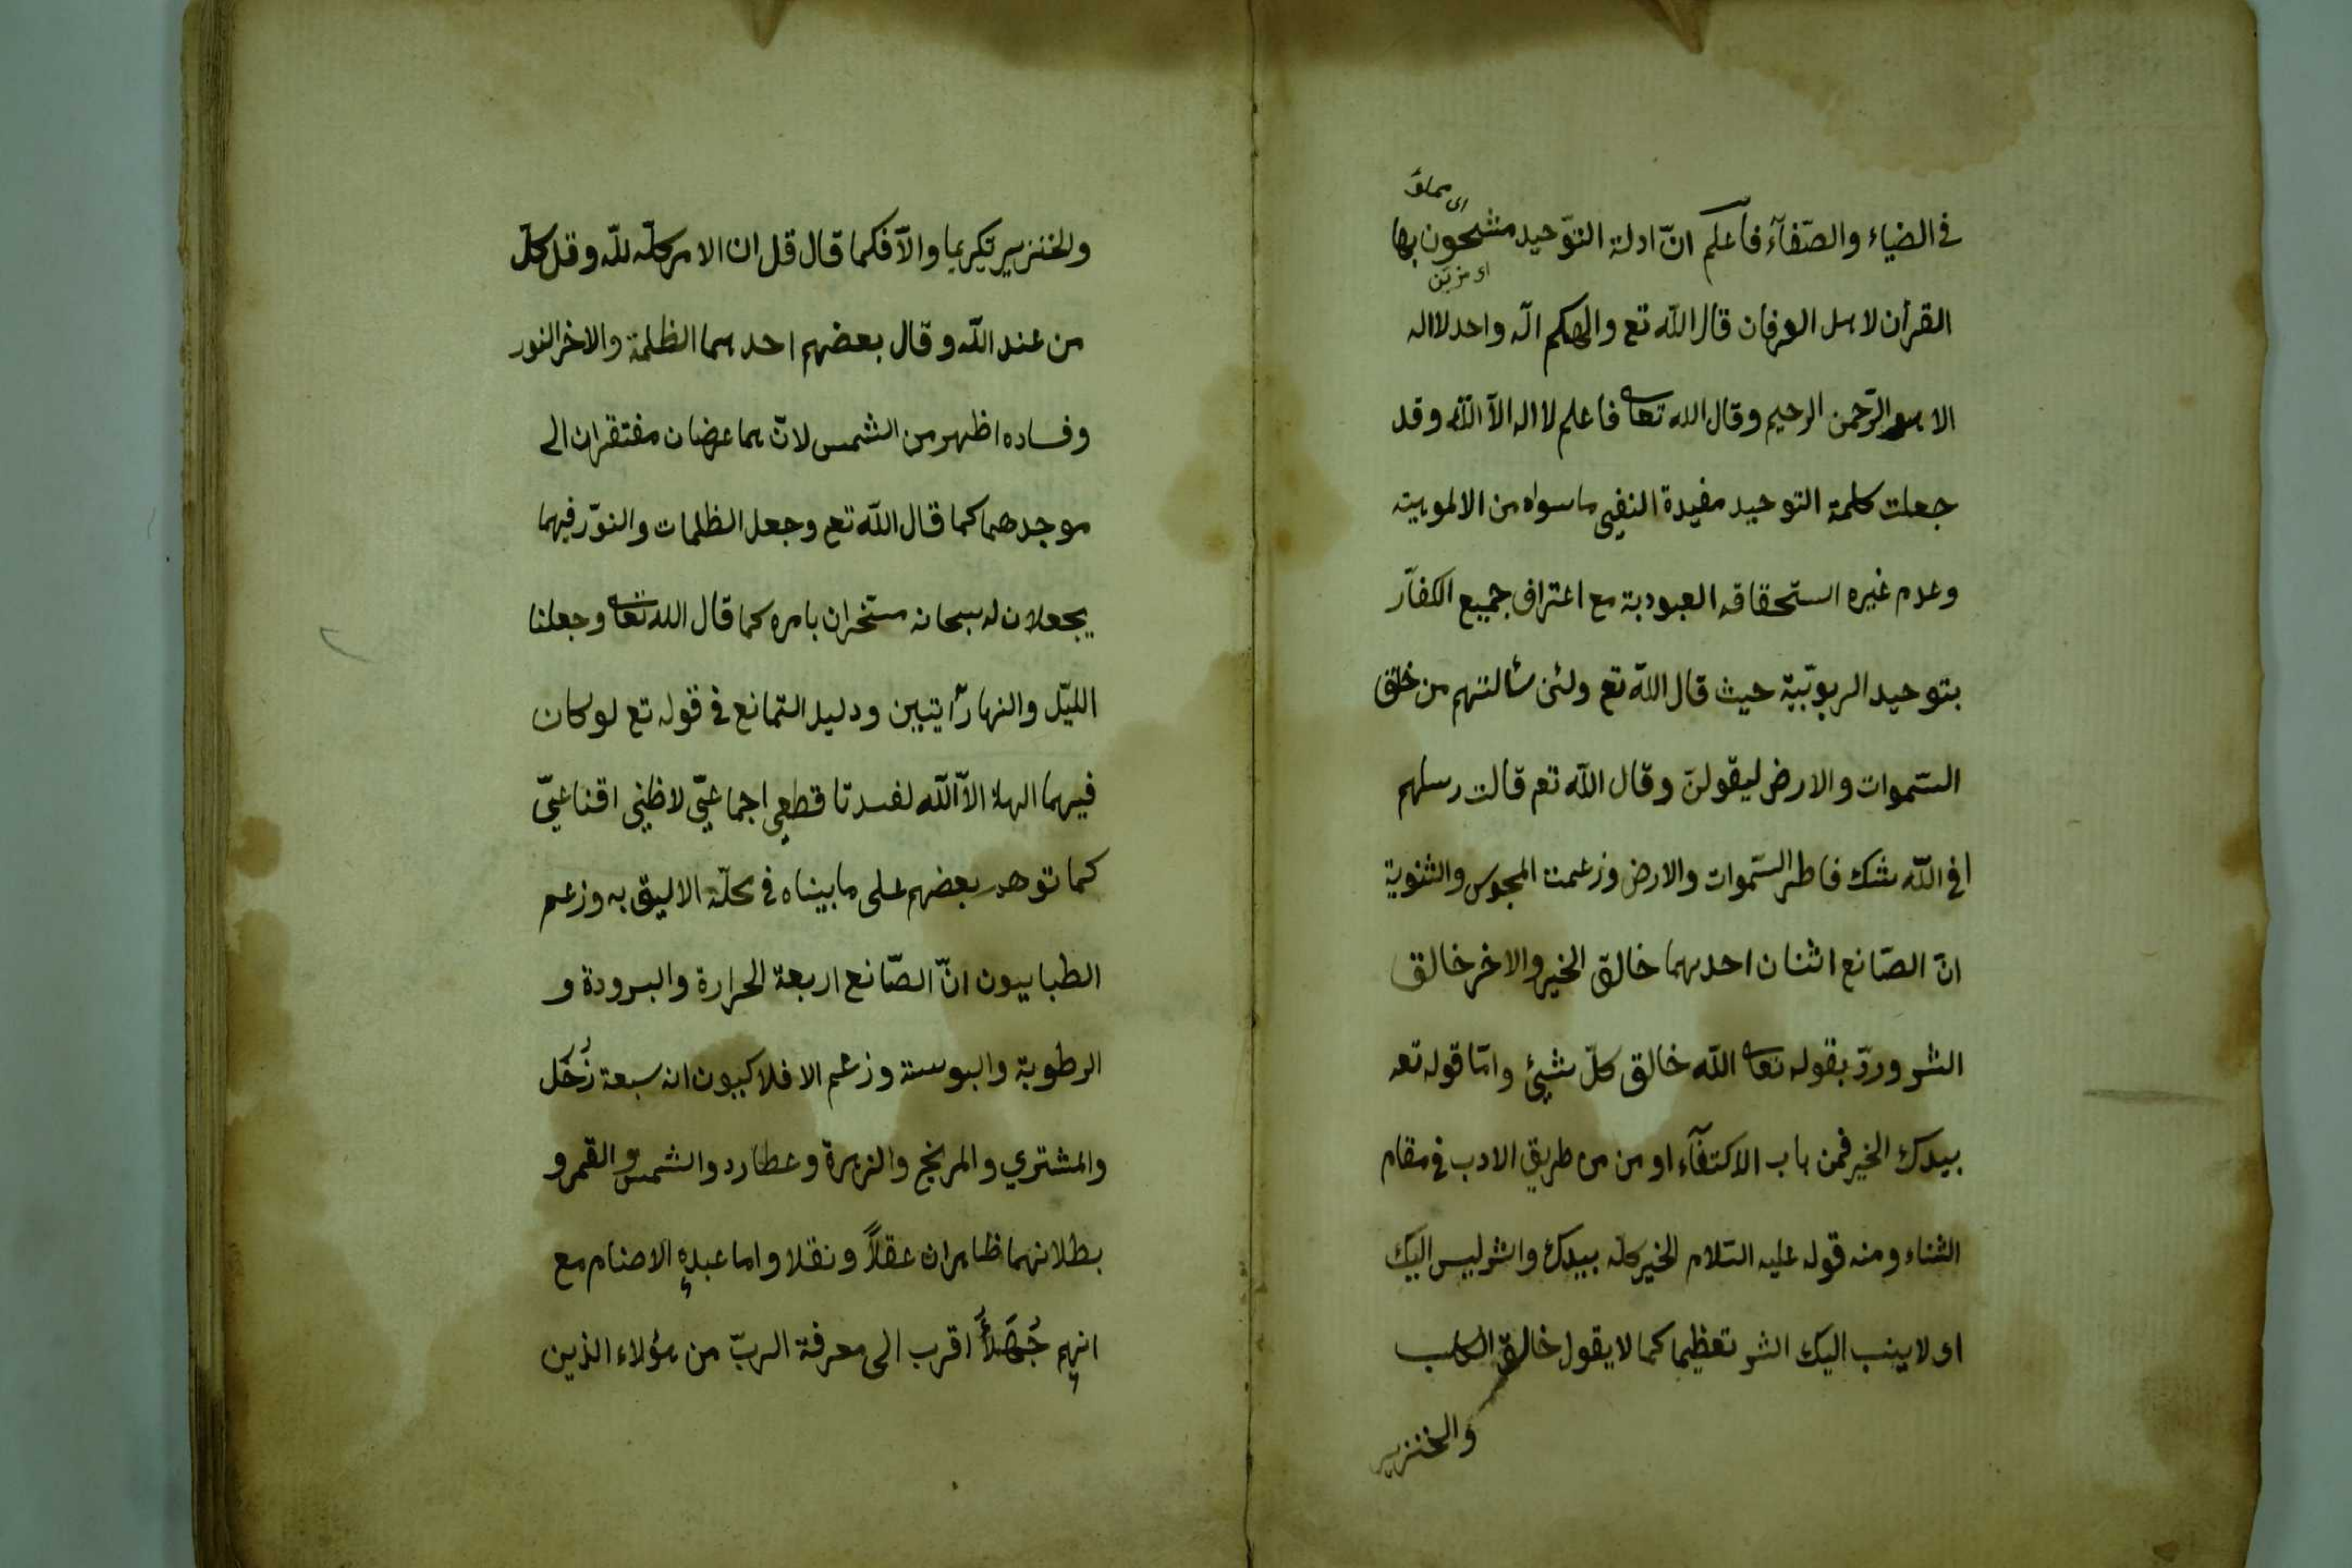 اى مملوّ
فى الضياء والصّفآء فآعلم انّ ادلة التّوحيد مشحون بها
اى مزيّن
القرأن لاهل العرفان قال اللّه تع والهكم الّه واحد لا اله
الا هو الرّحمن الرحيم وقال الله تعالى فاعلم لا اله الاّ اللّه وقد
جعلت كلمة التوحيد مفيدة النفيى ماسواه من الالوهيته
وعدم غيره استحقاقه العبودية مع اعتراف جميع الكفّار
بتوحيد الربوبّية حيث قال اللّه تع ولئن سألتهم من خلق
السّموات والارض ليقولنّ وقال اللّه تعم قالت رسلهم
افى اللّه شك فاطر السّموات والارض وزعمت المجوس والثنوية
انّ الصّانع اثنان احدهما خالق الخير والاخر خالق
الشر وردّ بقوله تعالى اللّه خالق كلّ شيئ وامّا قوله تعه
بيدك الخير فمن باب الاكتفآء او من من طريق الادب فى مقام
الثناء ومنه قوله عليه السّلام الخير كله بيدك والشر ليس اليك
اى لاينسب اليك الشر تعظيما كما لايقول خالق الكلب
والخنزير
والخنزير تكريما والاّ فكما قال قل ان الامر كلّه للّه وقل كلّ
من عند اللّه وقال بعضهم احدهما الظلمة والاخر النور
وفساده اظهر من الشمس لانّ هما عرضان مفتقران الى
موجدهما كما قال اللّه تع وجعل الظلمات والنوّر فيهما
يجعلان له سبحانه مسخران بامره كما قال الله تعالى وجعلنا
الليّل والنهار أيتيين ودليد التمانع فى قوله تع لو كان
فيهما الهلة الاّ اللّه لفسدتا قطعى اجماعيّ لا ظنى اقناعيّ
كما توهد بعضهم على ما بيناه فى محلّة الاليق به وزعم
الطبايبون انّ الصّانع اربعة الحرارة والبرودة و
الرطوبة واليبوسة وزعم الافلاكييون انه سبعة زُحَل
والمشتري والمريخ والزهرة وعطارد والشمس والقمر و
بطلانهما ظاهران عقلاً ونقلا واما عبدهِ الاصنام مع
انهم جُهَلاً اقرب الى معرفة الربّ من هؤلاء الذين